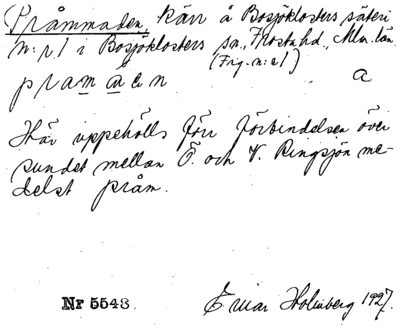 Pråmmaden, kärr å Bosjöklosters säteri
n:r 1 i Bosjöklosters sn., Frosta hd., Mlm. län.
(Frg. n:o 1)
pramaden a
Här uppehölls förr förbindelsen över
sundet mellan Ö. och V. Ringsjön me-
delst pråm.
Nr 5543. Einar Holmberg 1927.